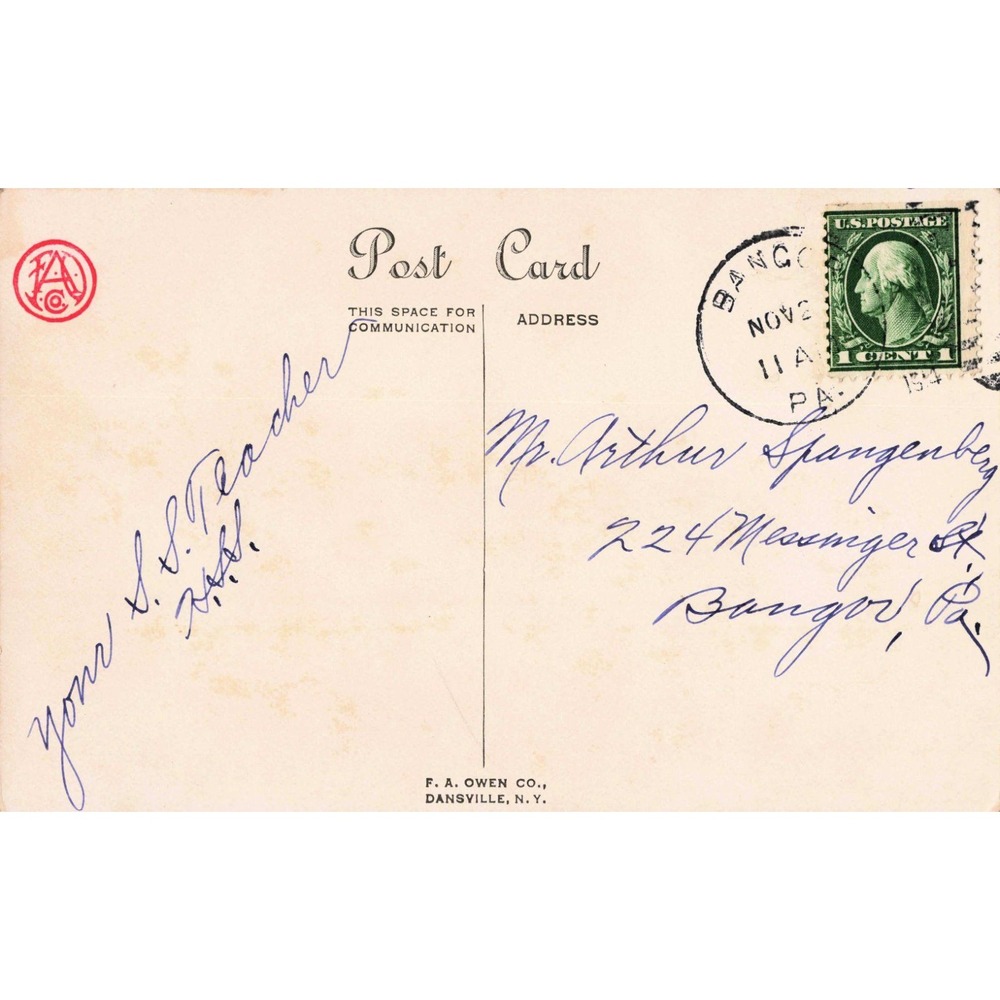 FAO Co.
Post Card
THIS SPACE FOR
COMMUNICATION
ADDRESS
U.S. POSTAGE
1 CENT 1
BANGOR
NOV 2
11 A
PA.
Your S. S. Teacher
Mr. Arthur Spangenberg
224 Messinger St.
Bangor, Pa.
F. A. OWEN CO.,
DANSVILLE, N.Y.